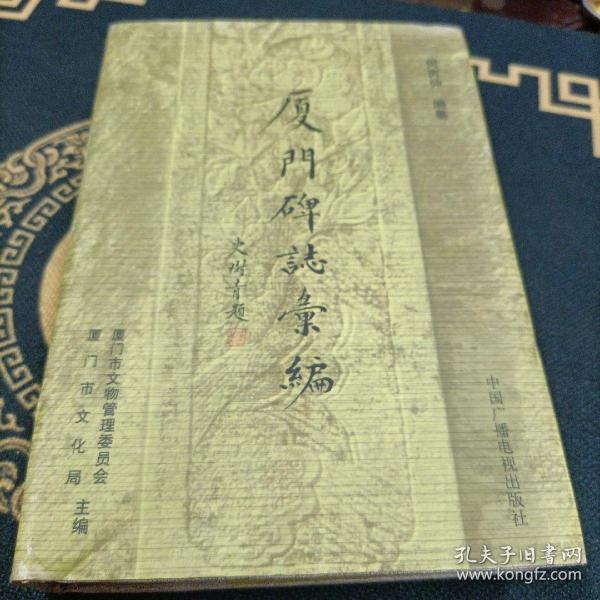 厦門碑誌彙編
史樹青題
编著
厦门市文物管理委员会
厦门市文化局 主编
中国广播电视出版社
孔夫子旧書网
www.kongfz.com